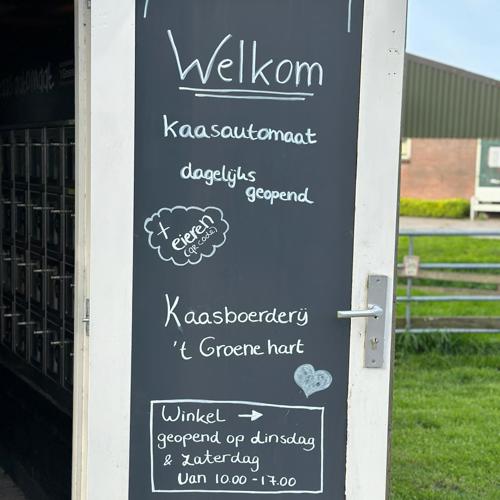 Welkom
Kaasautomaat
dagelijks
geopend
+ eieren
(QR code)
Kaasboerderij
't Groene hart
Winkel →
geopend op dinsdag
& zaterdag
van 10.00 - 17.00